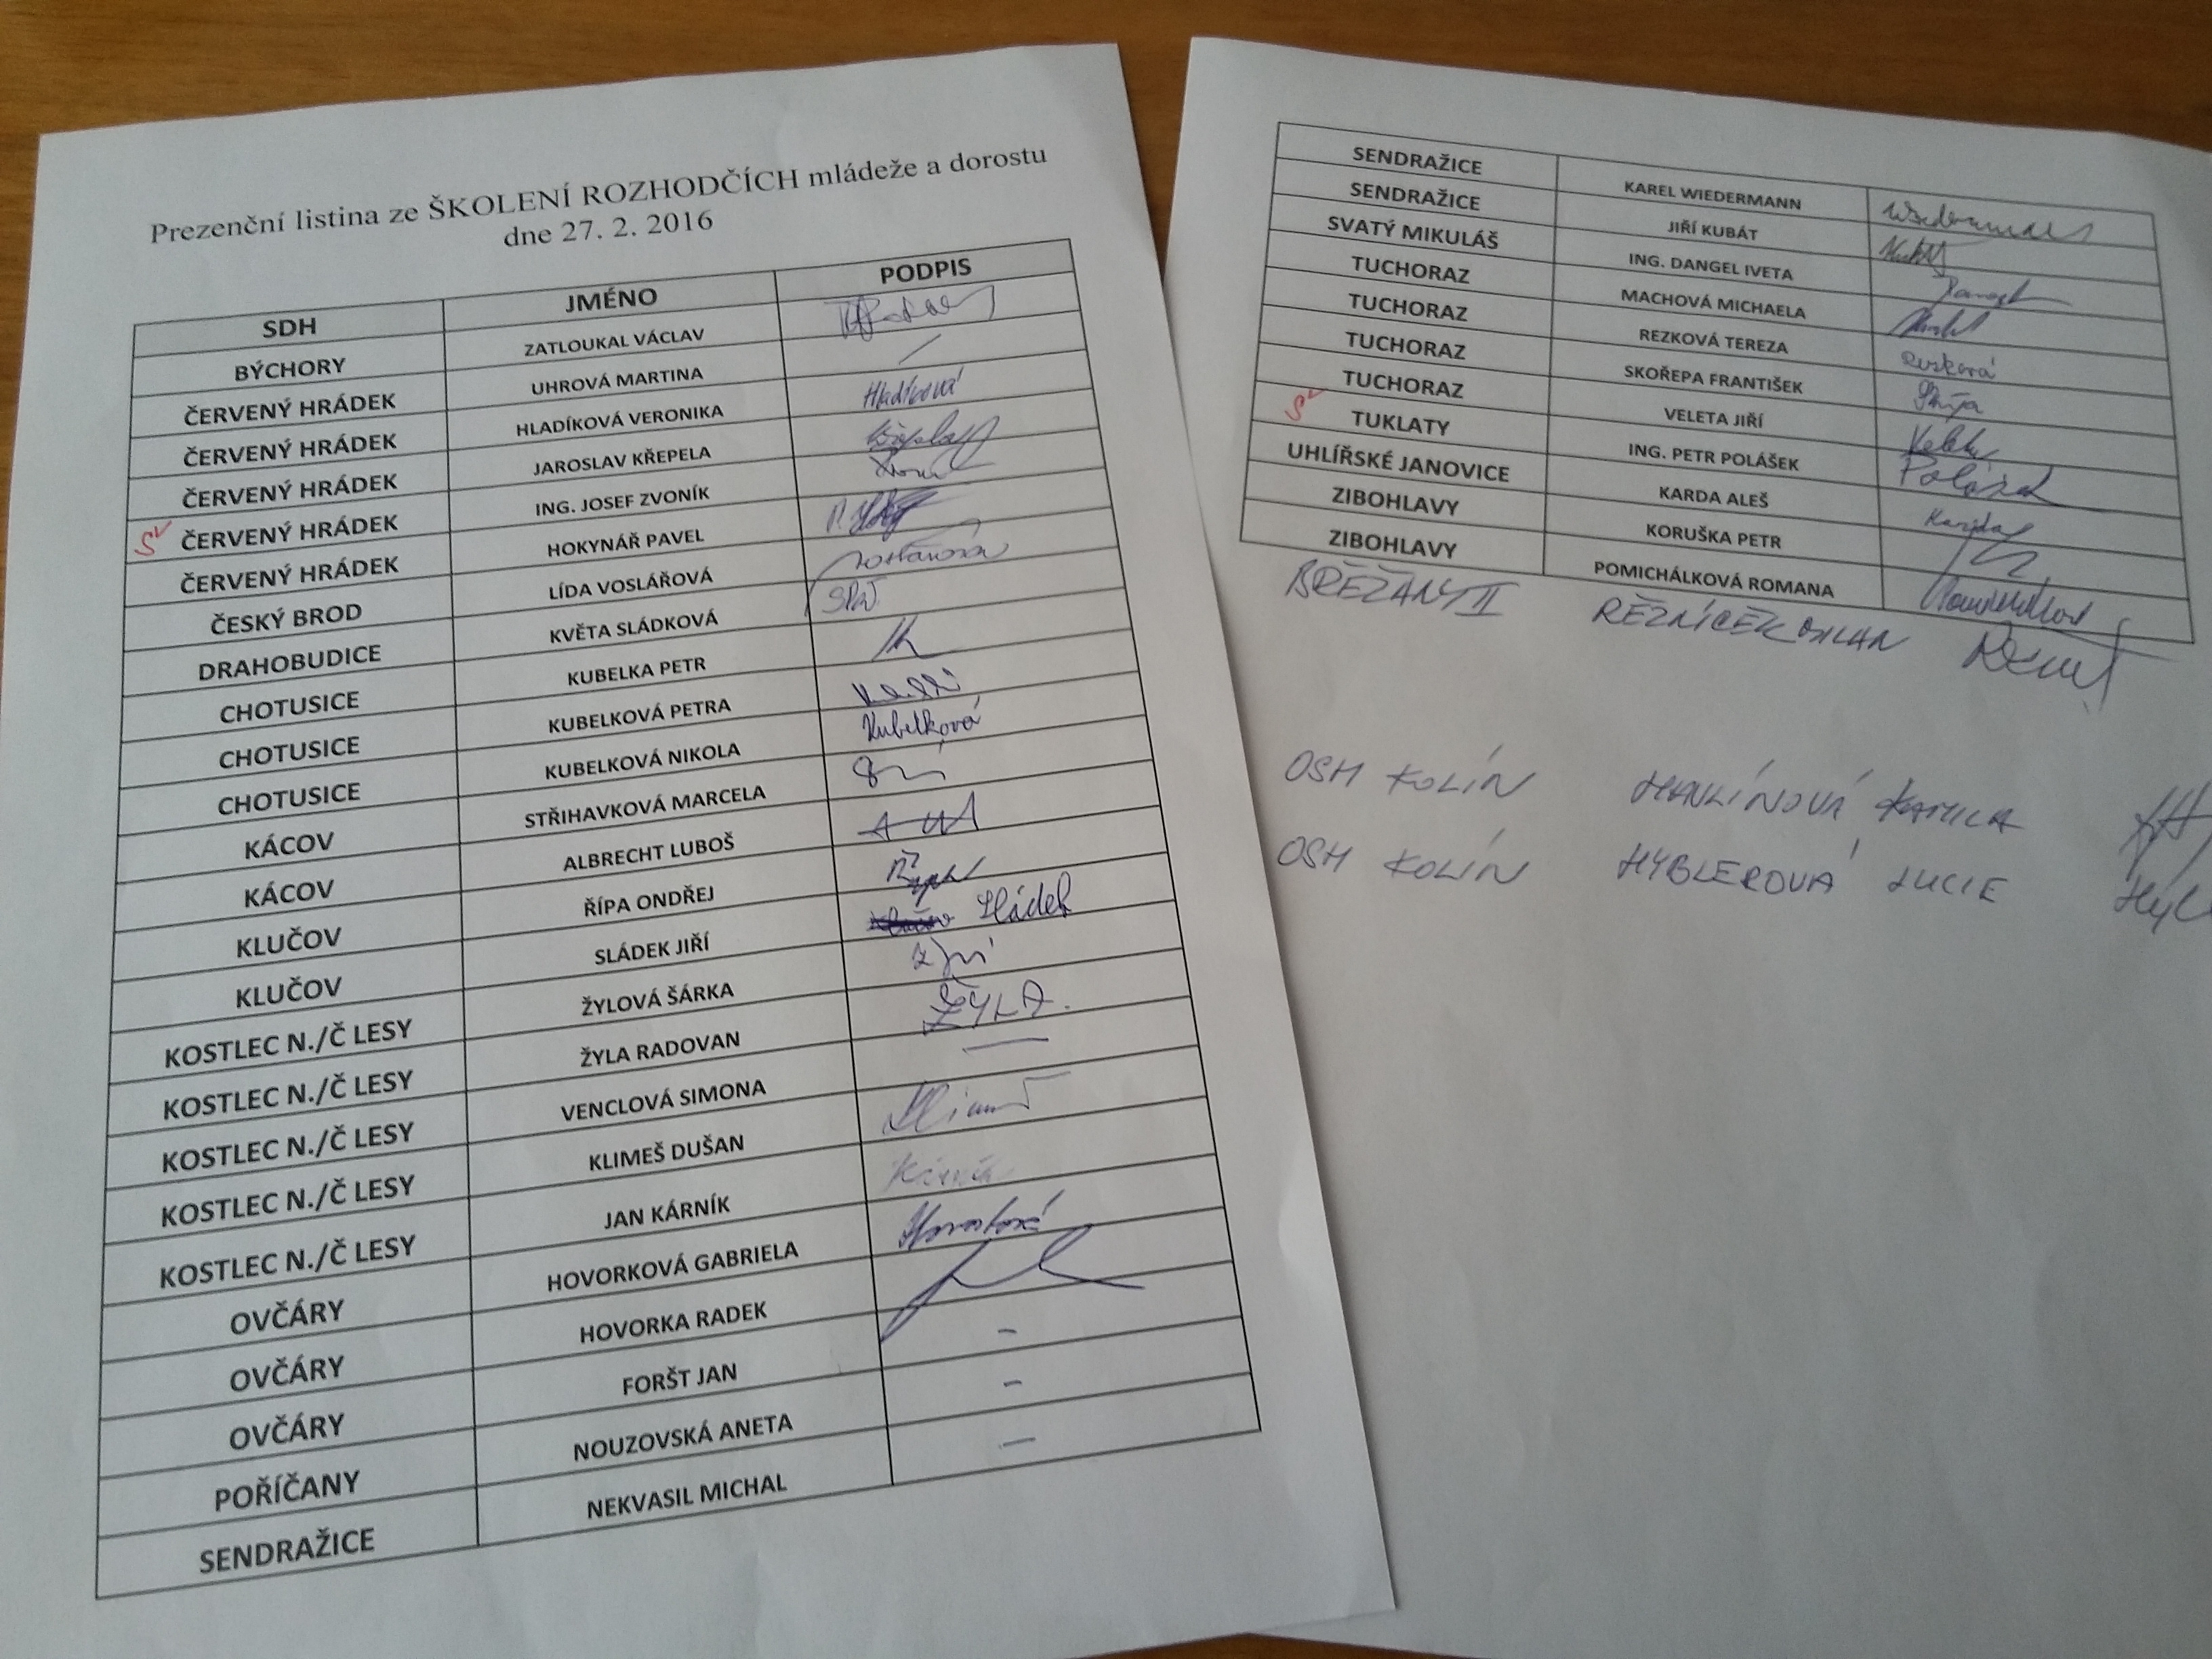 Prezenční listina ze ŠKOLENÍ ROZHODČÍCH mládeže a dorostu
dne 27. 2. 2016
SDH JMÉNO PODPIS
BÝCHORY ZATLOUKAL VÁCLAV
ČERVENÝ HRÁDEK UHROVÁ MARTINA
ČERVENÝ HRÁDEK HLADÍKOVÁ VERONIKA Hladíková
ČERVENÝ HRÁDEK JAROSLAV KŘEPELA
S ČERVENÝ HRÁDEK ING. JOSEF ZVONÍK
ČERVENÝ HRÁDEK HOKYNÁŘ PAVEL
ČESKÝ BROD LÍDA VOSLÁŘOVÁ
DRAHOBUDICE KVĚTA SLÁDKOVÁ
CHOTUSICE KUBELKA PETR
CHOTUSICE KUBELKOVÁ PETRA
CHOTUSICE KUBELKOVÁ NIKOLA Kubelková
KÁCOV STŘIHAVKOVÁ MARCELA
KÁCOV ALBRECHT LUBOŠ
KLUČOV ŘÍPA ONDŘEJ
KLUČOV SLÁDEK JIŘÍ Sládek
KOSTLEC N./Č LESY ŽYLOVÁ ŠÁRKA
KOSTLEC N./Č LESY ŽYLA RADOVAN ŽYLA.
KOSTLEC N./Č LESY VENCLOVÁ SIMONA —
KOSTLEC N./Č LESY KLIMEŠ DUŠAN
KOSTLEC N./Č LESY JAN KÁRNÍK Kárník
OVČÁRY HOVORKOVÁ GABRIELA
OVČÁRY HOVORKA RADEK
OVČÁRY FORŠT JAN –
POŘÍČANY NOUZOVSKÁ ANETA –
SENDRAŽICE NEKVASIL MICHAL –
SENDRAŽICE KAREL WIEDERMANN
SENDRAŽICE JIŘÍ KUBÁT
SVATÝ MIKULÁŠ ING. DANGEL IVETA
TUCHORAZ MACHOVÁ MICHAELA
TUCHORAZ REZKOVÁ TEREZA
TUCHORAZ SKOŘEPA FRANTIŠEK
TUCHORAZ VELETA JIŘÍ
S TUKLATY ING. PETR POLÁŠEK
UHLÍŘSKÉ JANOVICE KARDA ALEŠ Karda
ZIBOHLAVY KORUŠKA PETR
ZIBOHLAVY POMICHÁLKOVÁ ROMANA
BŘEŽANY II ŘEZNÍČEK MILAN
OSH KOLÍN HAVLÍNOVÁ KAMILA
OSH KOLÍN HYBLEROVÁ LUCIE